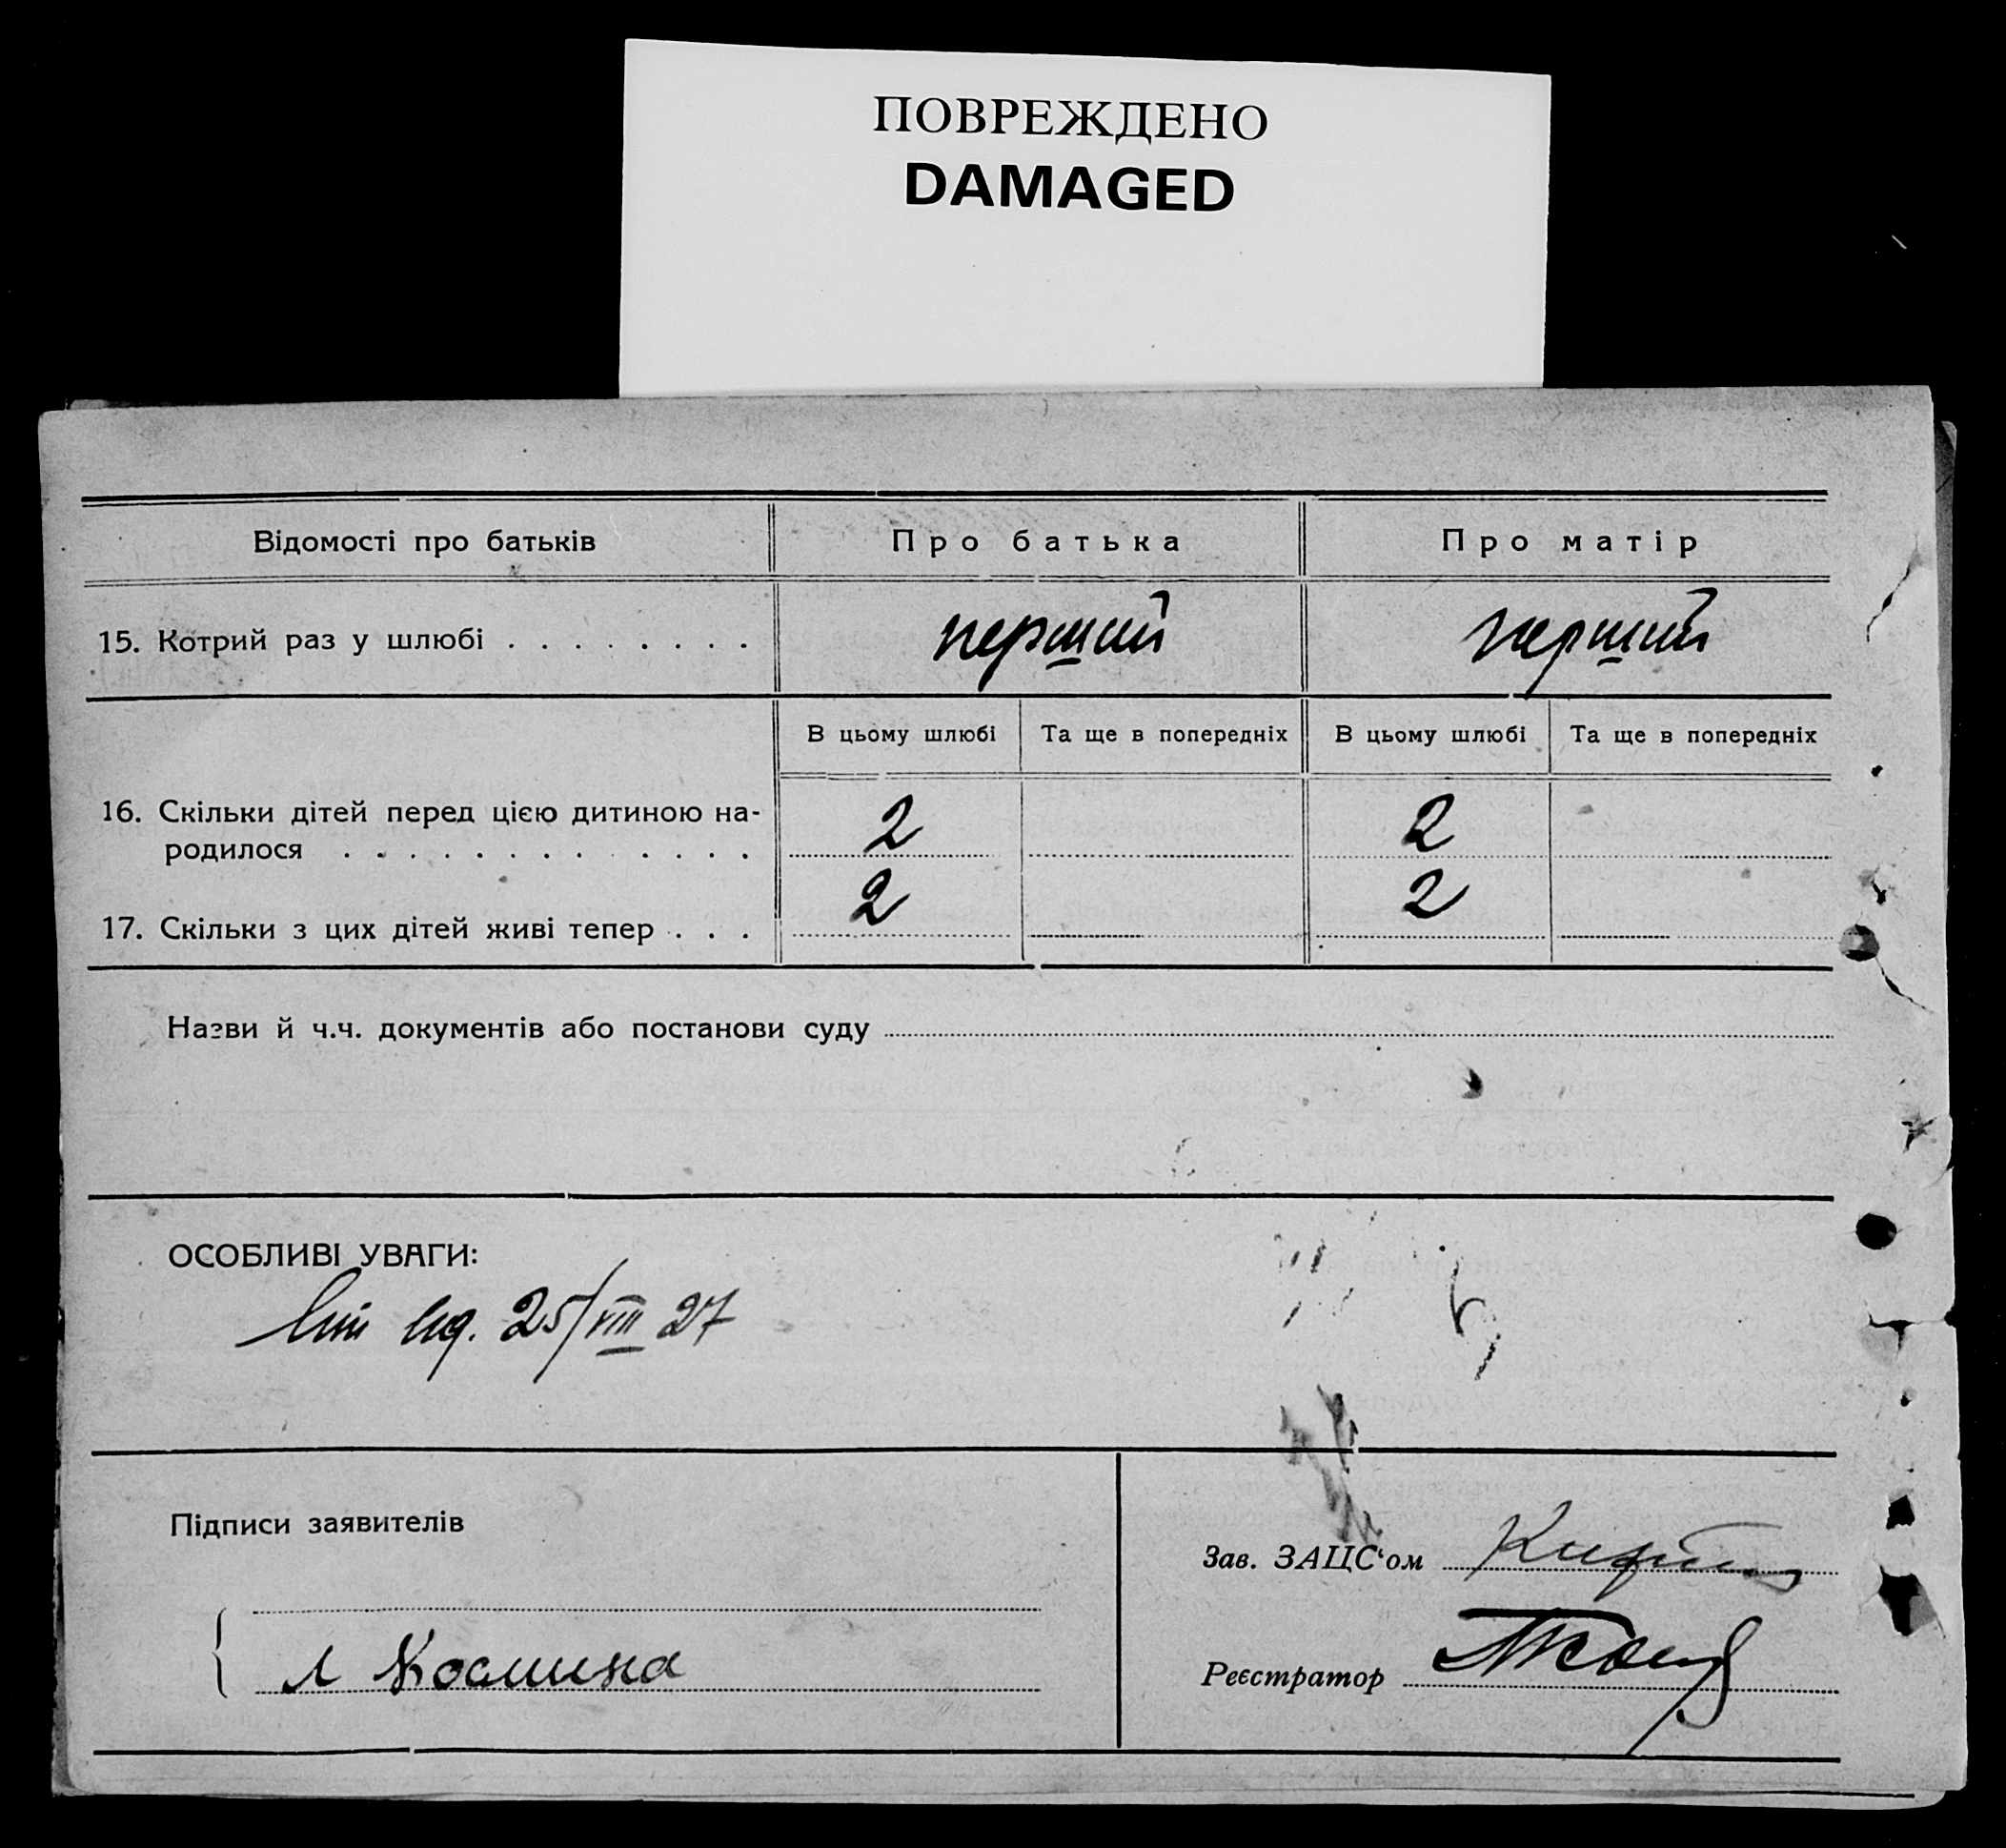 ПОВРЕЖДЕНО
DAMAGED
Відомості про батьків
Про батька
Про матір
15. Котрий раз у шлюбі . . . . . . . .
перший
перший
В цьому шлюбі
Та ще в попередніх
В цьому шлюбі
Та ще в попередніх
16. Скільки дітей перед цією дитиною на-
родилося . . . . . . . . . . . . .
2
2
17. Скільки з цих дітей живі тепер . . .
2
2
Назви й ч.ч. документів або постанови суду
ОСОБЛИВІ УВАГИ:
25/VIII 27
Підписи заявителів
Зав. ЗАЦС‘ом
Л
Реєстратор